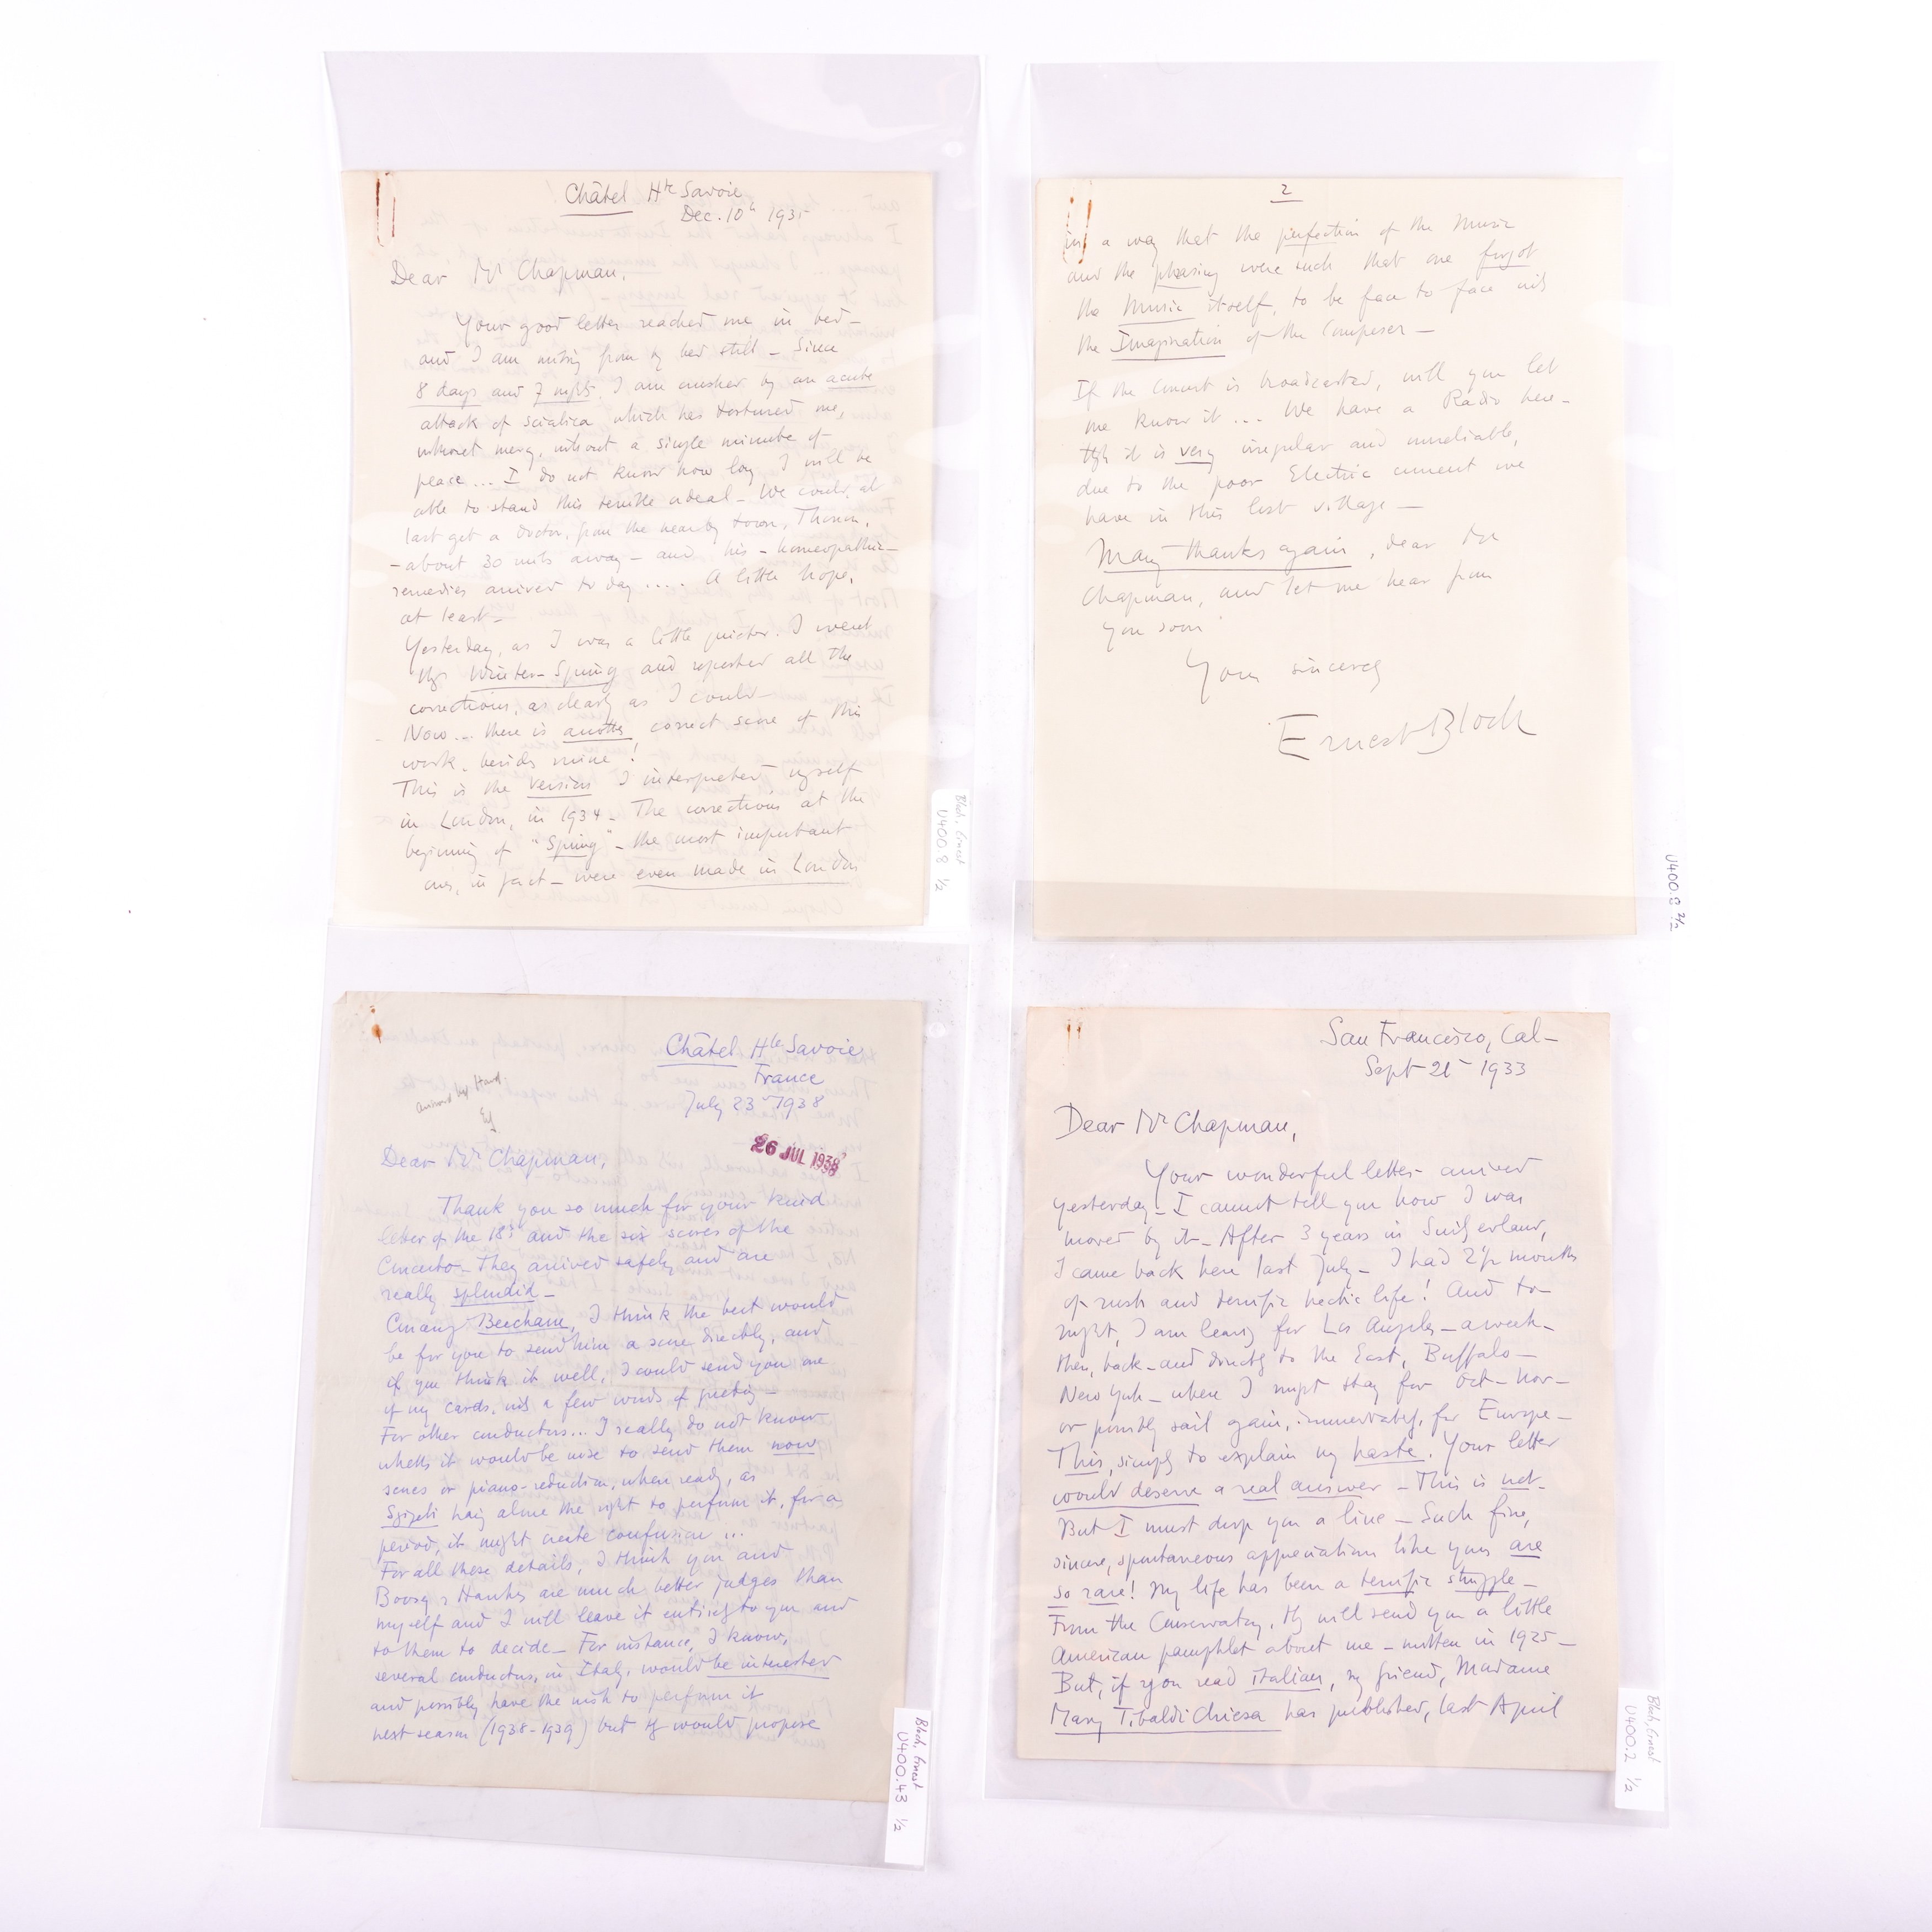 Châtel Hte Savoie
Dec. 10th 1935
Dear Mr Chapman,
Your good letter reached me in bed_
and I am writing from my bed still _ Since
8 days and 7 nights, I am crushed by an acute
attack of sciatica which has tortured me,
without mercy, without a single minute of
peace... I do not know how long I will be
able to stand this terrible ordeal _ We could, at
last get a doctor, from the nearby town, Thonon,
_ about 30 mils away _ and his _ homeopathic _
remedies arrived to day ..... A little hope,
at least _
Yesterday, as I was a little quieter, I went
thro Winter-Spring and reported all the
corrections, as clearly as I could _
Now... there is another correct score of this
work, besides mine!
This is the version I interpreted myself
in London, in 1934 _ The corrections at the
beginning of "Spring" _ the most important
ones, in fact _ were even made in London
Bloch, Ernest
U400.8 1/2
2
in a way that the perfection of the Music
and the phrasing were such that one forgot
the Music itself, to be face to face with
the Imagination of the Composer _
If the Concert is broadcasted, will you let
me know it ... We have a Radio here _
tho it is very irregular and unreliable,
due to the poor Electric current we
have in this lost village _
Many thanks again, dear Mr
Chapman, and let me hear from
you soon
Yours sincerely
Ernest Bloch
U400.8 2/2
Châtel Hte Savoie
France
July 23 1938
answered by Hand
26 JUL 1938
Dear Mr Chapman,
Thank you so much for your kind
letter of the 18th and the six scores of the
Concerto _ They arrived safely and are
really splendid _
Concerning Beecham, I think the best would
be for you to send him a score directly, and
if you think it well, I could send you one
of my cards, with a few words of greeting _
For other conductors... I really do not know
whether it would be wise to send them now
scores or piano-reduction, when ready, as
Szigeti having alone the right to perform it, for a
period, it might create confusion ...
For all these details, I think you and
Boosey & Hawkes are much better judges than
myself and I will leave it entirely to you and
to them to decide _ For instance, I know,
several conductors, in Italy, would be interested
and possibly have the wish to perform it
next season (1938-1939) but if I would propose
Bloch, Ernest
U400.43 1/2
San Francisco, Cal _
Sept 21 1933
Dear Mr Chapman,
Your wonderful letter arrived
yesterday _ I cannot tell you how I was
moved by it _ After 3 years in Switzerland,
I came back here last July _ I had 2 1/2 months
of rush and terrific hectic life! And to_
night, I am leaving for Los Angeles _ a week _
then, back _ and directly to the East, Buffalo _
New York _ where I might stay for Oct _ Nov _
or possibly sail again, immediately, for Europe _
This, simply to explain my haste. Your letter
would deserve a real answer _ This is not _
But I must drop you a line _ Such fine,
sincere, spontaneous appreciation like yours are
so rare! My life has been a terrific struggle _
From the Conservatory, they will send you a little
American pamphlet about me _ written in 1925 _
But, if you read italian, my friend, Madame
Mary Tibaldi Chiesa has published, last April
Bloch, Ernest
U400.2 1/2